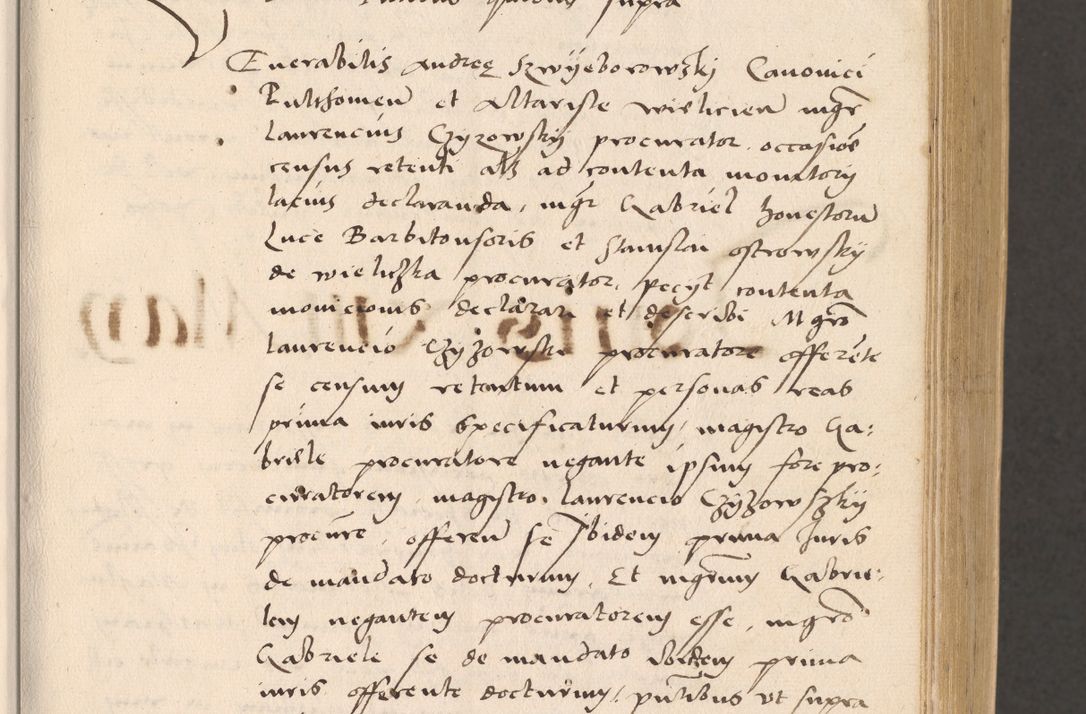 quibus supra
Venerabilis Andreę Szwyeborowsky Canonici
Pulthouien et Altariste wielicien mgr
Laurencius Czyzowsky procurator occasioē
census retenti als ad contenta monitorii
lacius declaranda, mgr Gabriel honestorū
Luce Barbitonsoris et Stanislai ostrowsky
de wieliczka procurator, pecyt contenta
monicionis declarari et describi Mgrō
Laurencio Czyzowsky procuratore offerēte
se censum retentum et personas reas
prima iuris specificaturum, magistro Ga:
briele procuratore negante ipsum fore pro:
curatorem, magistro Laurencio Czyzowszky
procurē, offeren se Ibidem prima Juris
de mandato docturum, Et mgrum Gabrie:
lem negantem procuratorem esse, mgrō
Gabriele se de mandato ibidem prima
iuris offerente docturum, pntibus ut supra